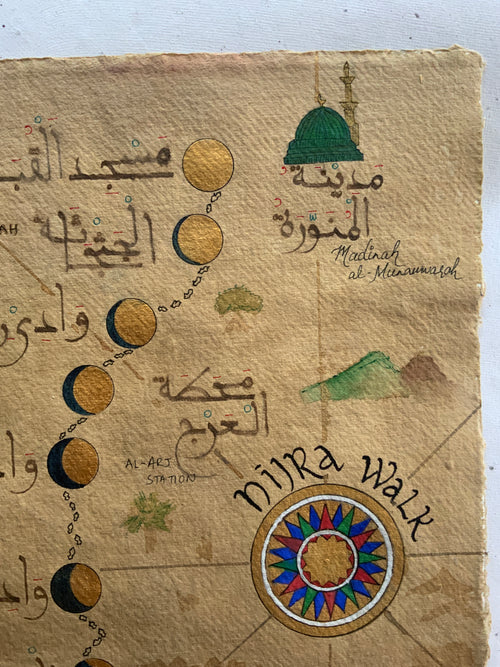 مسجد القب
مدينة
المنورة
Madinah
al-Munawwarah
AH
وادي ر
محطة
العرج
AL-ARJ
STATION
HIJRA WALK
واد
واد